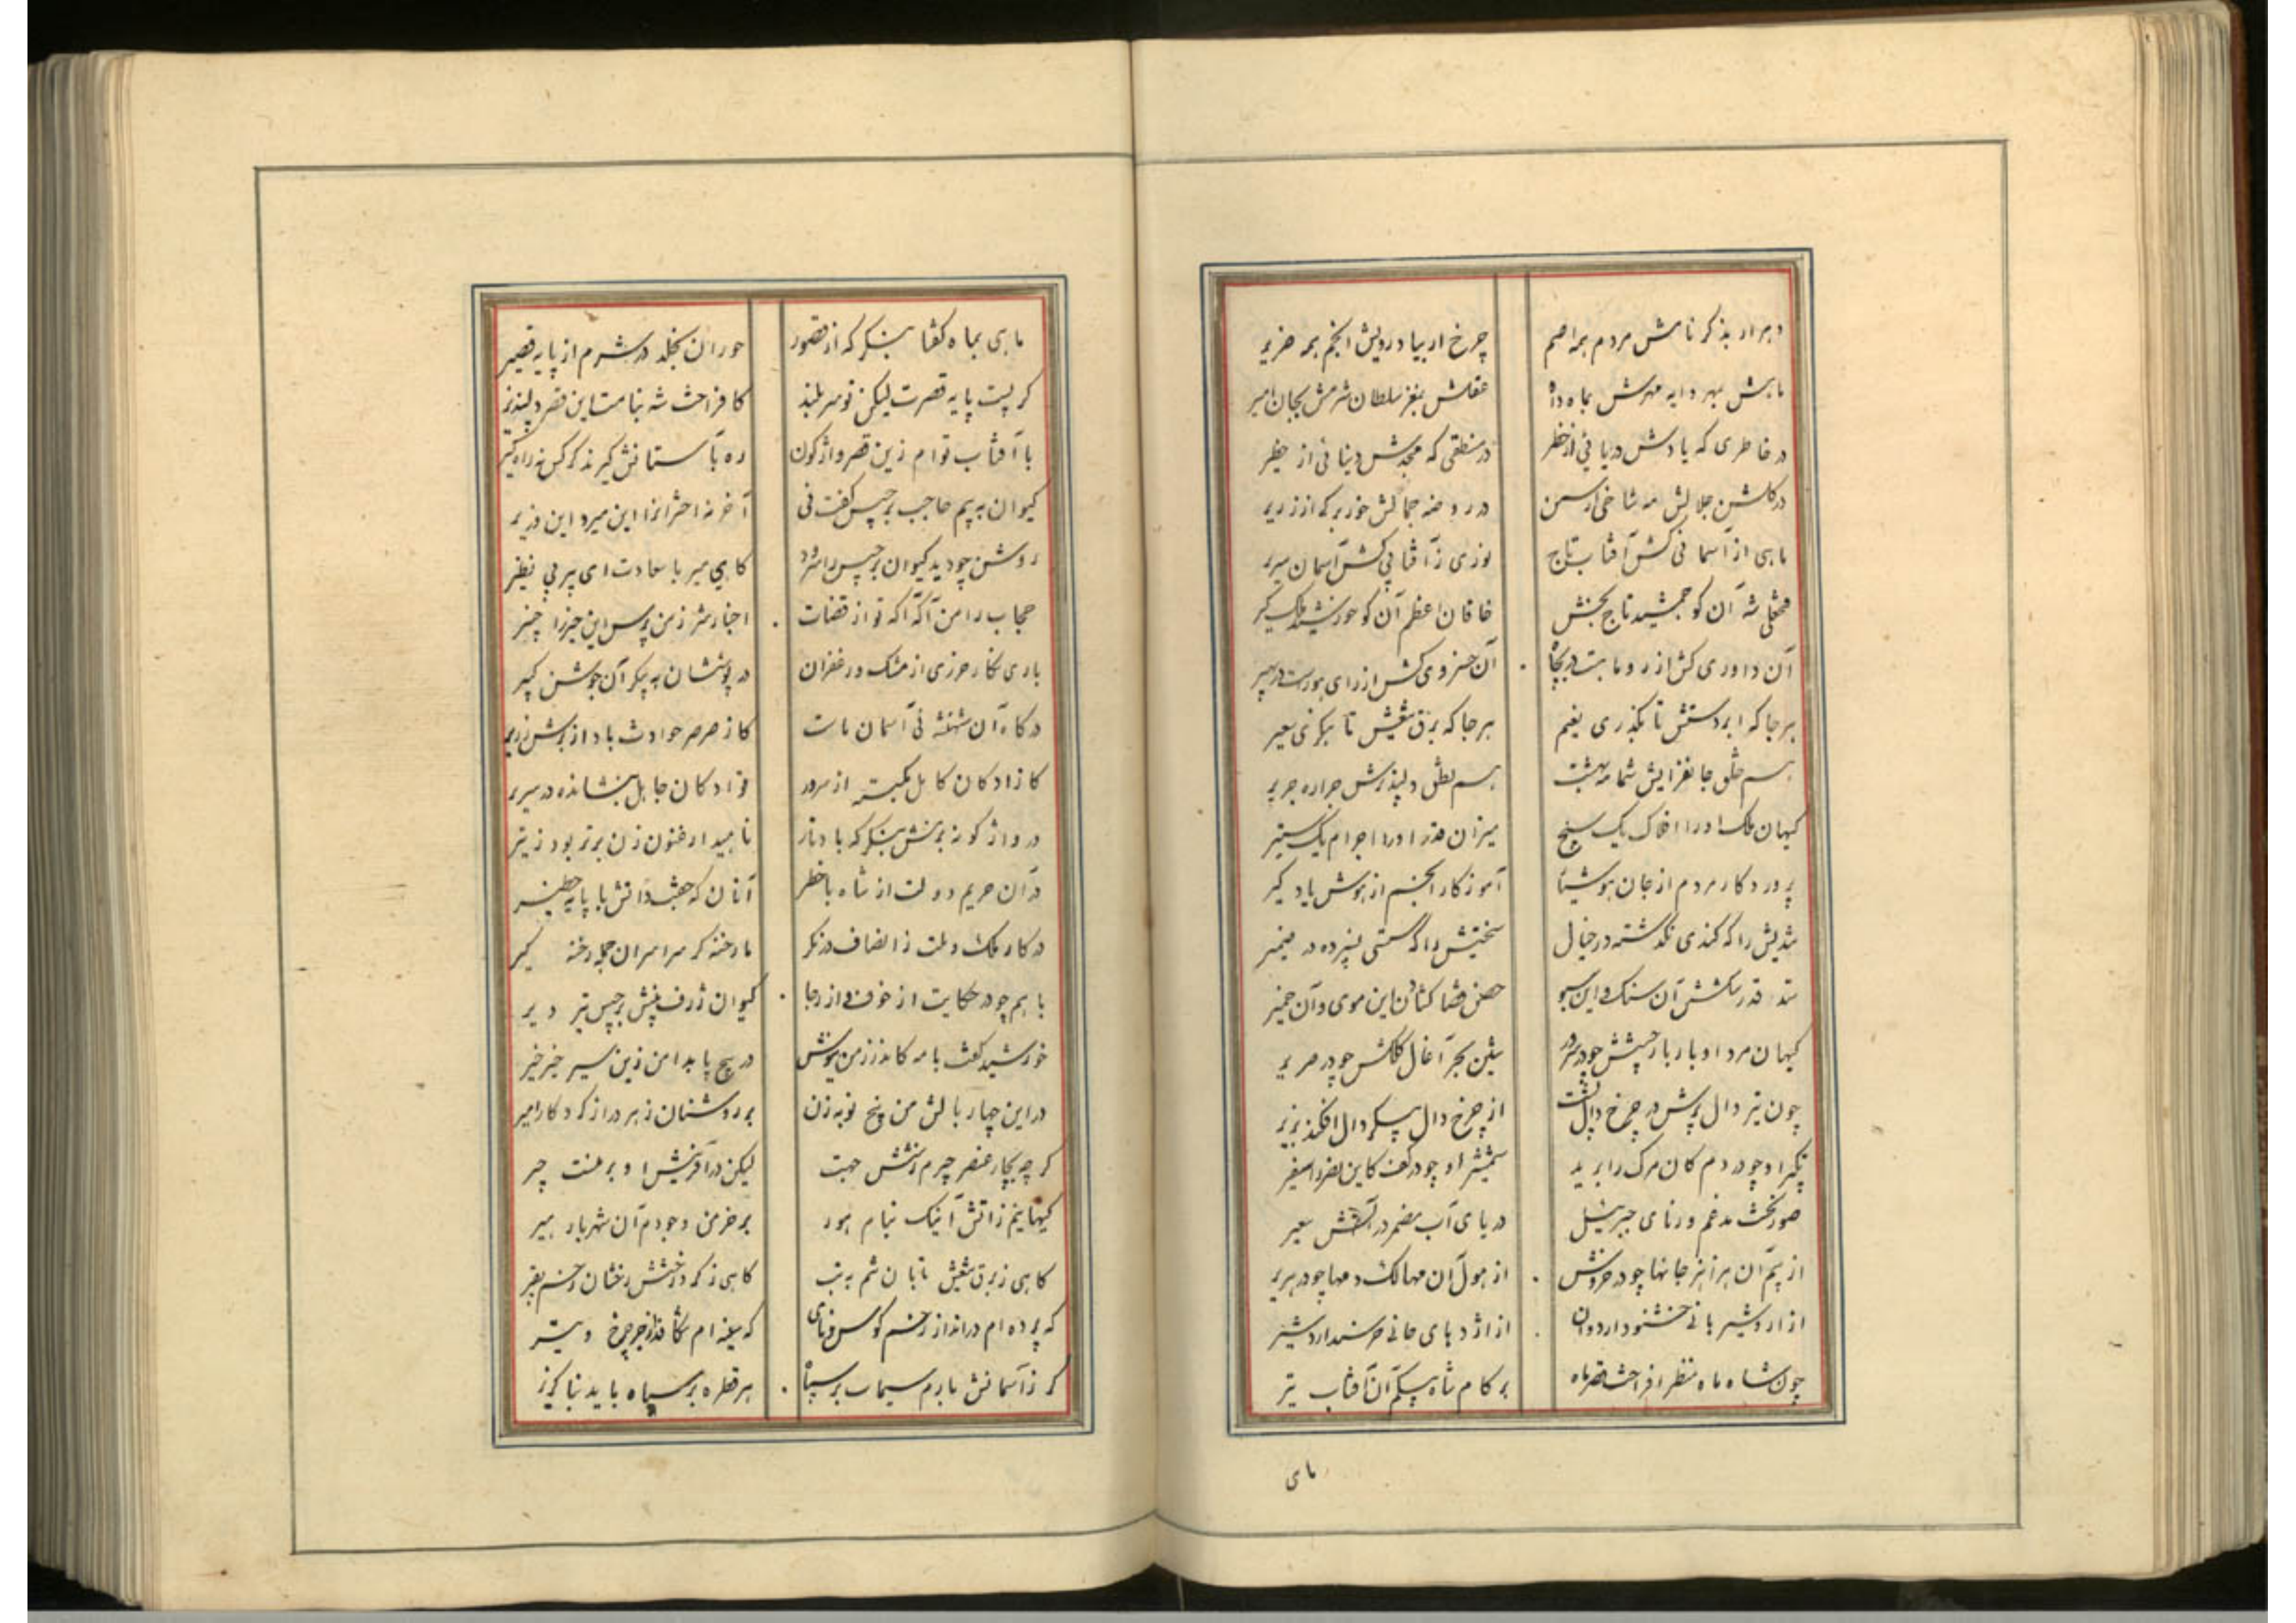 دهر ار بذکر نامش مردم همه اصم
چرخ ار بیاد رویش انجم همه ضریر
ماهش بمهر دایه مهرش بماه داه
عقلش بمغز سلطان شرمش بجان امیر
در خاطری که یادش دریا نی از خطر
در منطقی که مجدش دنیا نی از خطیر
در گلشن جلالش مه شاخی از سمن
در روضه جمالش خور برگی از زریر
ماهی از آسمانی کش آفتاب تاج
نوری ز آفتابی کش آسمان سریر
فتحعلی شه آن کو جمشید تاج بخش
خاقان اعظم آن کو خورشید ملک گیر
آن داوری کش از رو ماهست در بچاه
آن خسروی کش از رای هورست در سپهر
هر جا که ابر دستش تا بگذری یغیم
هر جا که برق تیغش تا بنگری سعیر
هم خلق جانفزایش شمامه بهشت
هم نطق دلپذیرش جراره جریر
کیهان ملک او را افلاک یک سنج
میزان قدر او را اجرام یک ستیر
پرورد کار مردم از جان هوشیار
آموزگار انجم از هوش یاد گیر
تندیش را که کندی نگذشته در خیال
سختیش را که سستی نسپرده در ضمیر
سد قدر شکستش آن سنگ و این سبو
حصن قضا کشادن این موی و آن خمیر
کیهان مرد اوبار بارخشش چو در نبرد
تنین بحر آغال کلکش چو در صریر
چون تیر دال پرش در چرخ دال پشت
از چرخ دال پیکر دال افکند بزیر
پیکر او چو در دم کان مرگ را برید
شمشیر او چو در کف کاین نصر را سفیر
صور نخست مدغم در نای جبرئیل
دریای آب مضمر در آتش سعیر
از بیم آن هزاهز جانها چو در خروش
از هول آن مهالک دمها چو در هریر
از اردشیر بانی خشنود اردوان
از اژدهای جانی خرسند اردشیر
چون شاه ماه منظر افراخت قصر ماه
بر کام شاه پیکم آن آفتاب تیر
مای
ماهی بماه گفتا بنگر که از قصور
حوران بخلد در شرم از پایه قصیر
گر پست پایه قصرت لیکن تو سر بلند
کافراخت شه بنامت این قصر دلپذیر
با آفتاب توام زین قصر واژگون
ره بآستانش گیرند گر کس نه راه گیر
کیوان به بیم حاجب برجیس گفت فی
آخر نه اختر انرا این میر و این وزیر
روشن چو دید کیوان برجیس را سرود
کای میر با سعادت ای پیر بی نظیر
حجاب را من آگه آگه تو از قضات
اخبار شر ز من پرس این خیر را خبیر
باری نگار حرزی از مشک و زعفران
در پوششان به پیکر آن جوشن کبیر
درگاه آن شهنشه نی آسمان ماست
کاز صرصر حوادث باد از برش زریر
کازادگان کامل بگسسته از سرور
نوزادگان جاهل بنشانده در سریر
در واژگونه برمش بنگر که با دنار
ناهید ارغنون زن برتر بود ز تیر
در آن حریم دولت از شاه با خطر
آنان که جفت دانش با پایه خطیر
در کار ملک و ملت ز انصاف در نگر
ما رخنه گر سراسر ان جمله رخنه گیر
با هم چو در حکایت از خوف و از رجا
کیوان ژرف بینش برجیس تیز ویر
خورشید گفت با مه کاندرز من نیوش
در پیچ پا بدامن زین سیر خیر خیر
در این چهار بالش من پنج نوبه زن
بر روشنان ز هر در از کردگار امیر
گر چه بچار عنصر چرم ز شش جهت
لیکن در آفرینش او برمنت چیر
کیهانیم ز آتش آنیک بنام هور
بر خرمن وجودم آن شهریار هیر
گاهی ز برق تیغش تابان تنم به تب
گاهی ز گرد رخشش رخشان رخم بقیر
گه پرده ام در انداز زخم کوس و نای
گه سفته ام شکافد از جر چرخ و تیر
گر ز آسمانش بارم سیماب بر سپاه
هر قطره بر سیاه باید بنا گزیر